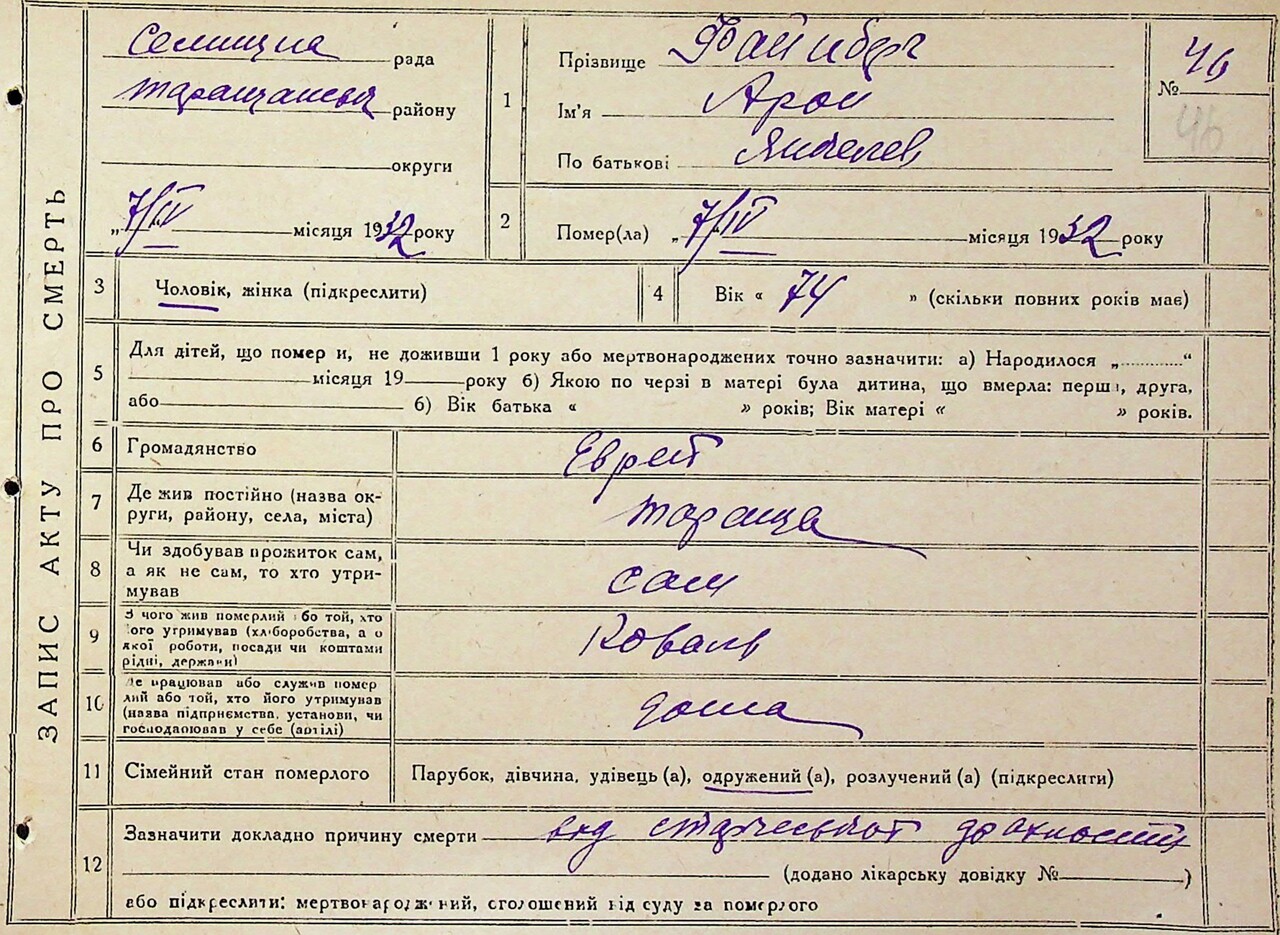 ЗАПИС АКТУ ПРО СМЕРТЬ
Селищна рада
району
округи
„7/IV місяця 1932 року
1
Прізвище Файнберг
Ім'я Арон
По батькові
№ 46
46
2
Помер(ла) „7/IV місяця 1932 року
3
Чоловік, жінка (підкреслити)
4
Вік « 74 » (скільки повних років має)
5
Для дітей, що помер и, не доживши 1 року або мертвонароджених точно зазначити: а) Народилося „............“
місяця 19 року б) Якою по черзі в матері була дитина, що вмерла: перша, друга,
або б) Вік батька « » років; Вік матері « » років.
6
Громадянство
Еврей
7
Де жив постійно (назва ок-
руги, району, села, міста)
Тараща
8
Чи здобував прожиток сам,
а як не сам, то хто утри-
мував
сам
9
З чого жив померлий або той, хто
його утримував (хліборобства, а о
якої роботи, посади чи коштами
рідні, держави)
Коваль
10
Де працював або служив помер
лий або той, хто його утримував
(назва підприємства, установи, чи
господарював у себе (артілі)
дома
11
Сімейний стан померлого
Парубок, дівчина, удівець (а), одружений (а), розлучений (а) (підкреслити)
12
Зазначити докладно причину смерти від старческой дряхности
(додано лікарську довідку № )
або підкреслити: мертвонароджений, оголошений від суду за померлого